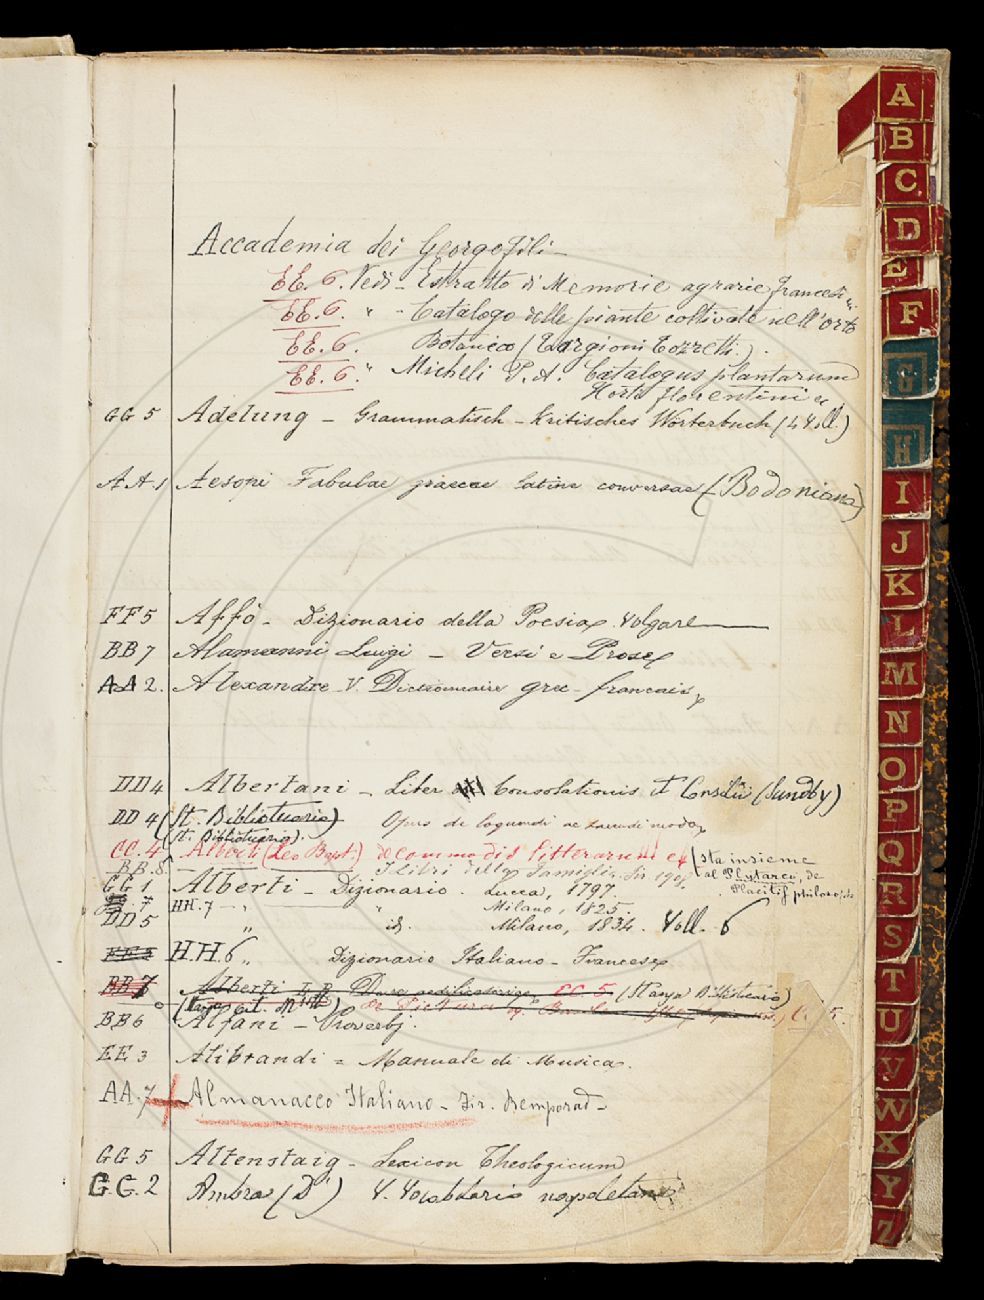 Accademia dei Georgofili -
EE. 6. Vedi - Estratto di Memorie agrarie francesi
EE. 6. " - Catalogo delle piante coltivate nell'Orto
EE. 6. Botanico (Targioni Tozzetti).
EE. 6. " Micheli P. A. Catalogus plantarum
Horti florentini
GG 5 Adelung - Grammatisch - kritisches Wörterbuch (4 Voll.)
AA 1 Aesopi Fabulae graecae latine conversae (Bodoniana)
FF 5 Affò - Dizionario della Poesia Volgare
BB 7 Alamanni Luigi - Versi e Prose
AA 2. Alexandre V. Dictionnaire grec - français
DD 4 Albertani - Liber Consolationis et Consilii (Sundby)
DD 4 (St. Bibliotecario) Opus de loquendi ac tacendi modo
(St. Bibliotecario).
CC. 4 Alberti (Leo Bapt.) De commodis litterarum et (sta insieme
BB. 8. I Libri della Famiglia. 1908. al Plutarco, de
GG 1 Alberti - Dizionario - Lucca, 1797. Placitis philosoph.
7 HH. 7 - " " Milano, 1825.
DD 5 " id. Milano, 1834. Voll. 6
EE 5 H.H. 6 " Dizionario Italiano - Francese
BB 7 Alberti L. B. De re aedificatoria CC 5 (Stanza Bibliotecario)
De Pictura
BB 6 Alfani - Proverbj.
EE 3 Alibrandi = Manuale di Musica.
AA. 7 Almanacco Italiano - Fir. Bemporad -
GG 5 Altenstaig - Lexicon Theologicum
G.G. 2 Ambra (D') V. Vocabolario napoletano
A
B
C
D
E
F
G
H
I
J
K
L
M
N
O
P
Q
R
S
T
U
V
W
X
Y
Z